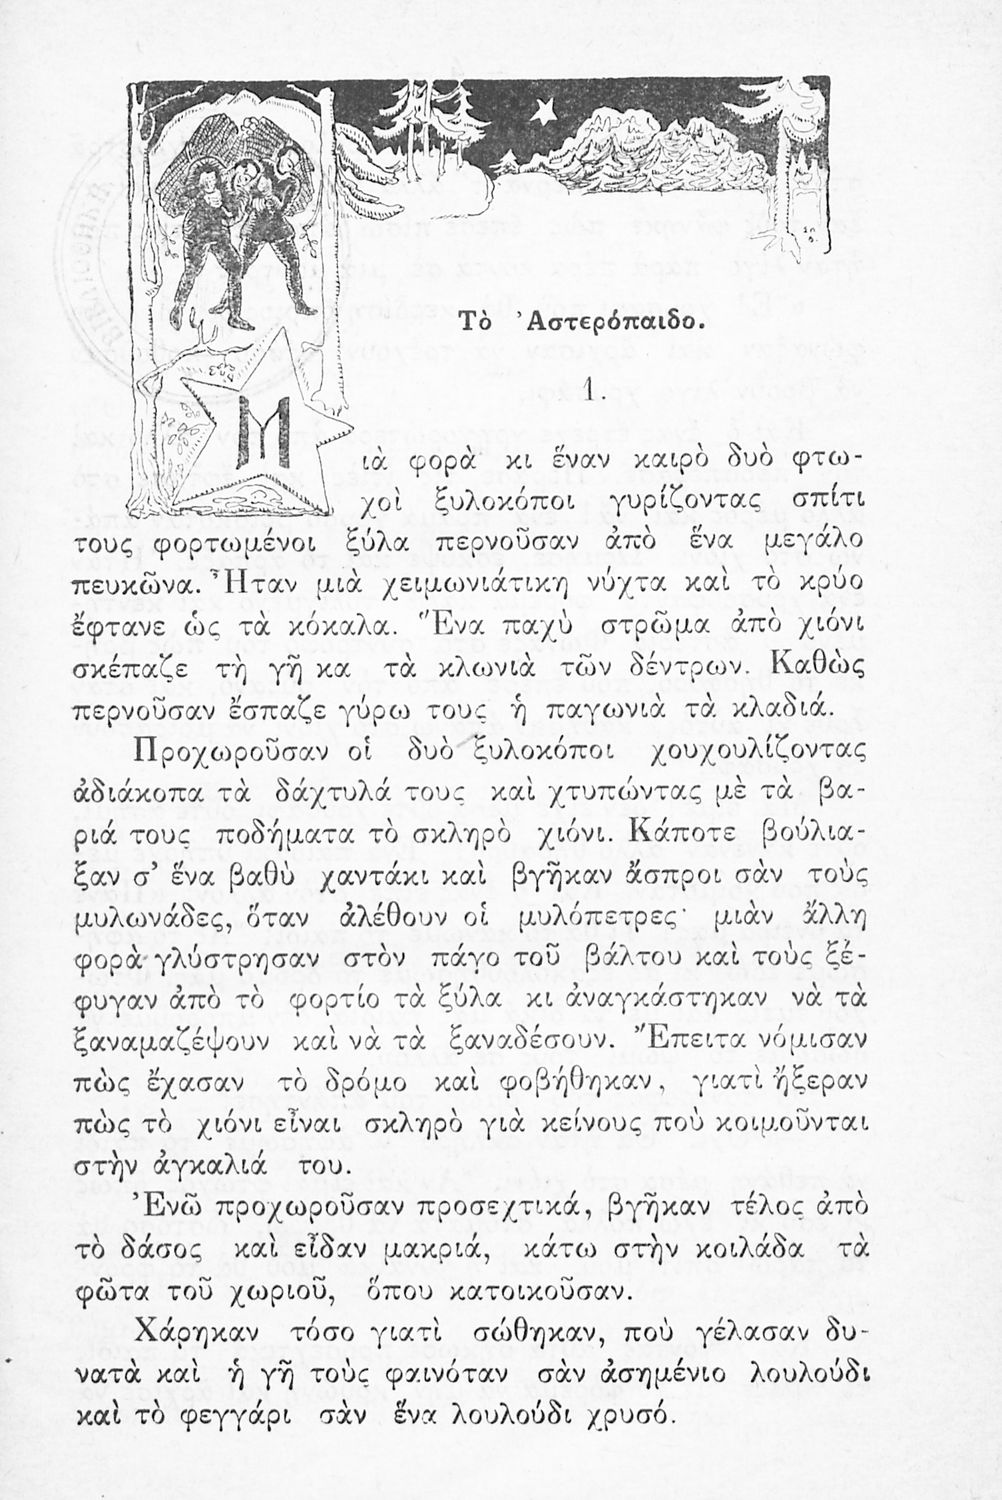 Τὸ Ἀστερόπαιδο.
1.
Μιὰ φορὰ κι ἕναν καιρὸ δυὸ φτω-
χοὶ ξυλοκόποι γυρίζοντας σπίτι
τους φορτωμένοι ξύλα περνοῦσαν ἀπὸ ἕνα μεγάλο
πευκῶνα. Ἦταν μιὰ χειμωνιάτικη νύχτα καὶ τὸ κρύο
ἔφτανε ὡς τὰ κόκαλα. Ἕνα παχὺ στρῶμα ἀπὸ χιόνι
σκέπαζε τὴ γῆ κα τὰ κλωνιὰ τῶν δέντρων. Καθὼς
περνοῦσαν ἔσπαζε γύρω τους ἡ παγωνιὰ τὰ κλαδιά.
Προχωροῦσαν οἱ δυὸ ξυλοκόποι χουχουλίζοντας
ἀδιάκοπα τὰ δάχτυλά τους καὶ χτυπώντας μὲ τὰ βα-
ριά τους ποδήματα τὸ σκληρὸ χιόνι. Κάποτε βούλια-
ξαν σ’ ἕνα βαθὺ χαντάκι καὶ βγῆκαν ἄσπροι σὰν τοὺς
μυλωνάδες, ὅταν ἀλέθουν οἱ μυλόπετρες· μιὰν ἄλλη
φορὰ γλύστρησαν στὸν πάγο τοῦ βάλτου καὶ τοὺς ξέ-
φυγαν ἀπὸ τὸ φορτίο τὰ ξύλα κι ἀναγκάστηκαν νὰ τὰ
ξαναμαζέψουν καὶ νὰ τὰ ξαναδέσουν. Ἔπειτα νόμισαν
πὼς ἔχασαν τὸ δρόμο καὶ φοβήθηκαν, γιατὶ ἤξεραν
πὼς τὸ χιόνι εἶναι σκληρὸ γιὰ κείνους ποὺ κοιμοῦνται
στὴν ἀγκαλιά του.
Ἐνῶ προχωροῦσαν προσεχτικά, βγῆκαν τέλος ἀπὸ
τὸ δάσος καὶ εἶδαν μακριά, κάτω στὴν κοιλάδα τὰ
φῶτα τοῦ χωριοῦ, ὅπου κατοικοῦσαν.
Χάρηκαν τόσο γιατὶ σώθηκαν, ποὺ γέλασαν δυ-
νατὰ καὶ ἡ γῆ τοὺς φαινόταν σὰν ἀσημένιο λουλούδι
καὶ τὸ φεγγάρι σὰν ἕνα λουλούδι χρυσό.